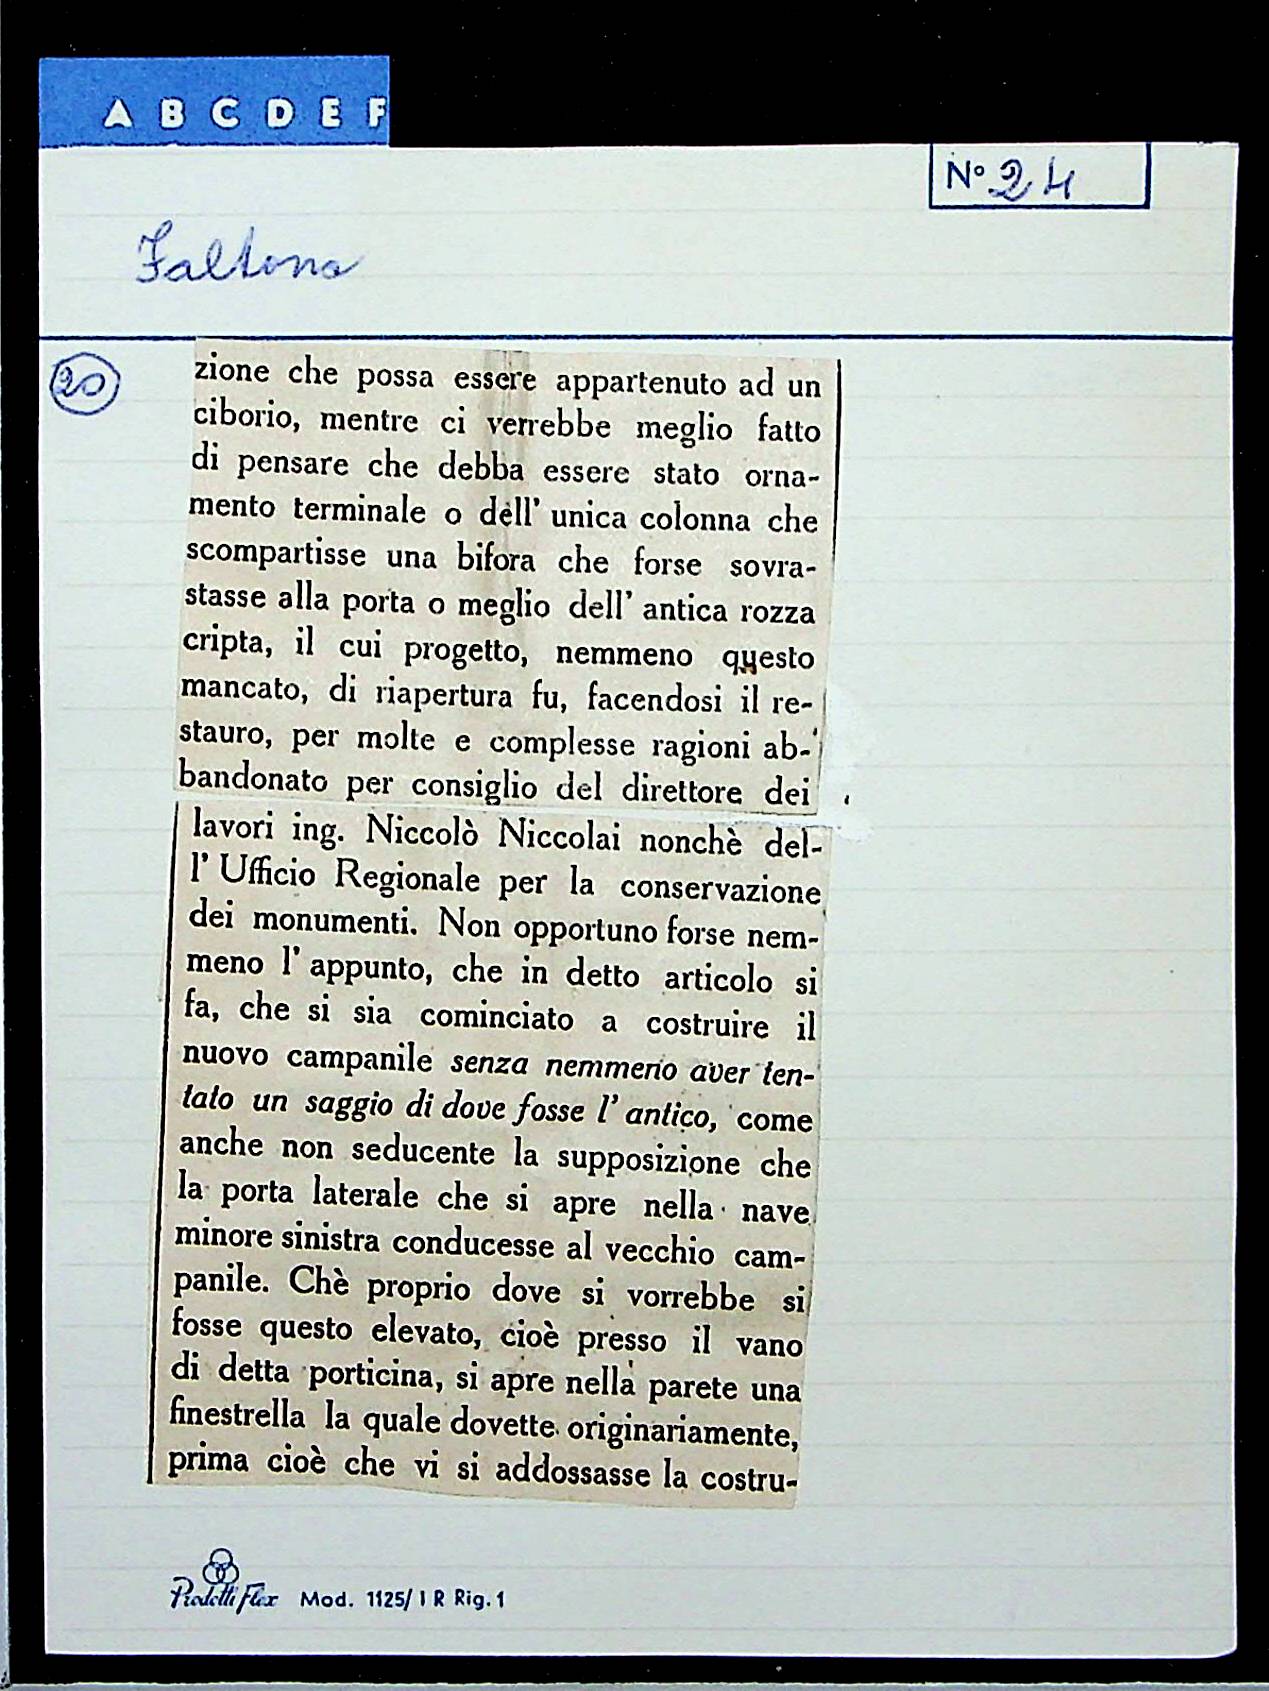 A B C D E F
N° 24
Faltona
20
zione che possa essere appartenuto ad un
ciborio, mentre ci verrebbe meglio fatto
di pensare che debba essere stato orna-
mento terminale o dell' unica colonna che
scompartisse una bifora che forse sovra-
stasse alla porta o meglio dell' antica rozza
cripta, il cui progetto, nemmeno questo
mancato, di riapertura fu, facendosi il re-
stauro, per molte e complesse ragioni ab-
bandonato per consiglio del direttore dei
lavori ing. Niccolò Niccolai nonchè del-
l' Ufficio Regionale per la conservazione
dei monumenti. Non opportuno forse nem-
meno l' appunto, che in detto articolo si
fa, che si sia cominciato a costruire il
nuovo campanile senza nemmeno aver ten-
tato un saggio di dove fosse l' antico, come
anche non seducente la supposizione che
la porta laterale che si apre nella nave
minore sinistra conducesse al vecchio cam-
panile. Chè proprio dove si vorrebbe si
fosse questo elevato, cioè presso il vano
di detta porticina, si apre nella parete una
finestrella la quale dovette originariamente,
prima cioè che vi si addossasse la costru-
Prodotti Flex Mod. 1125/ I R Rig. 1